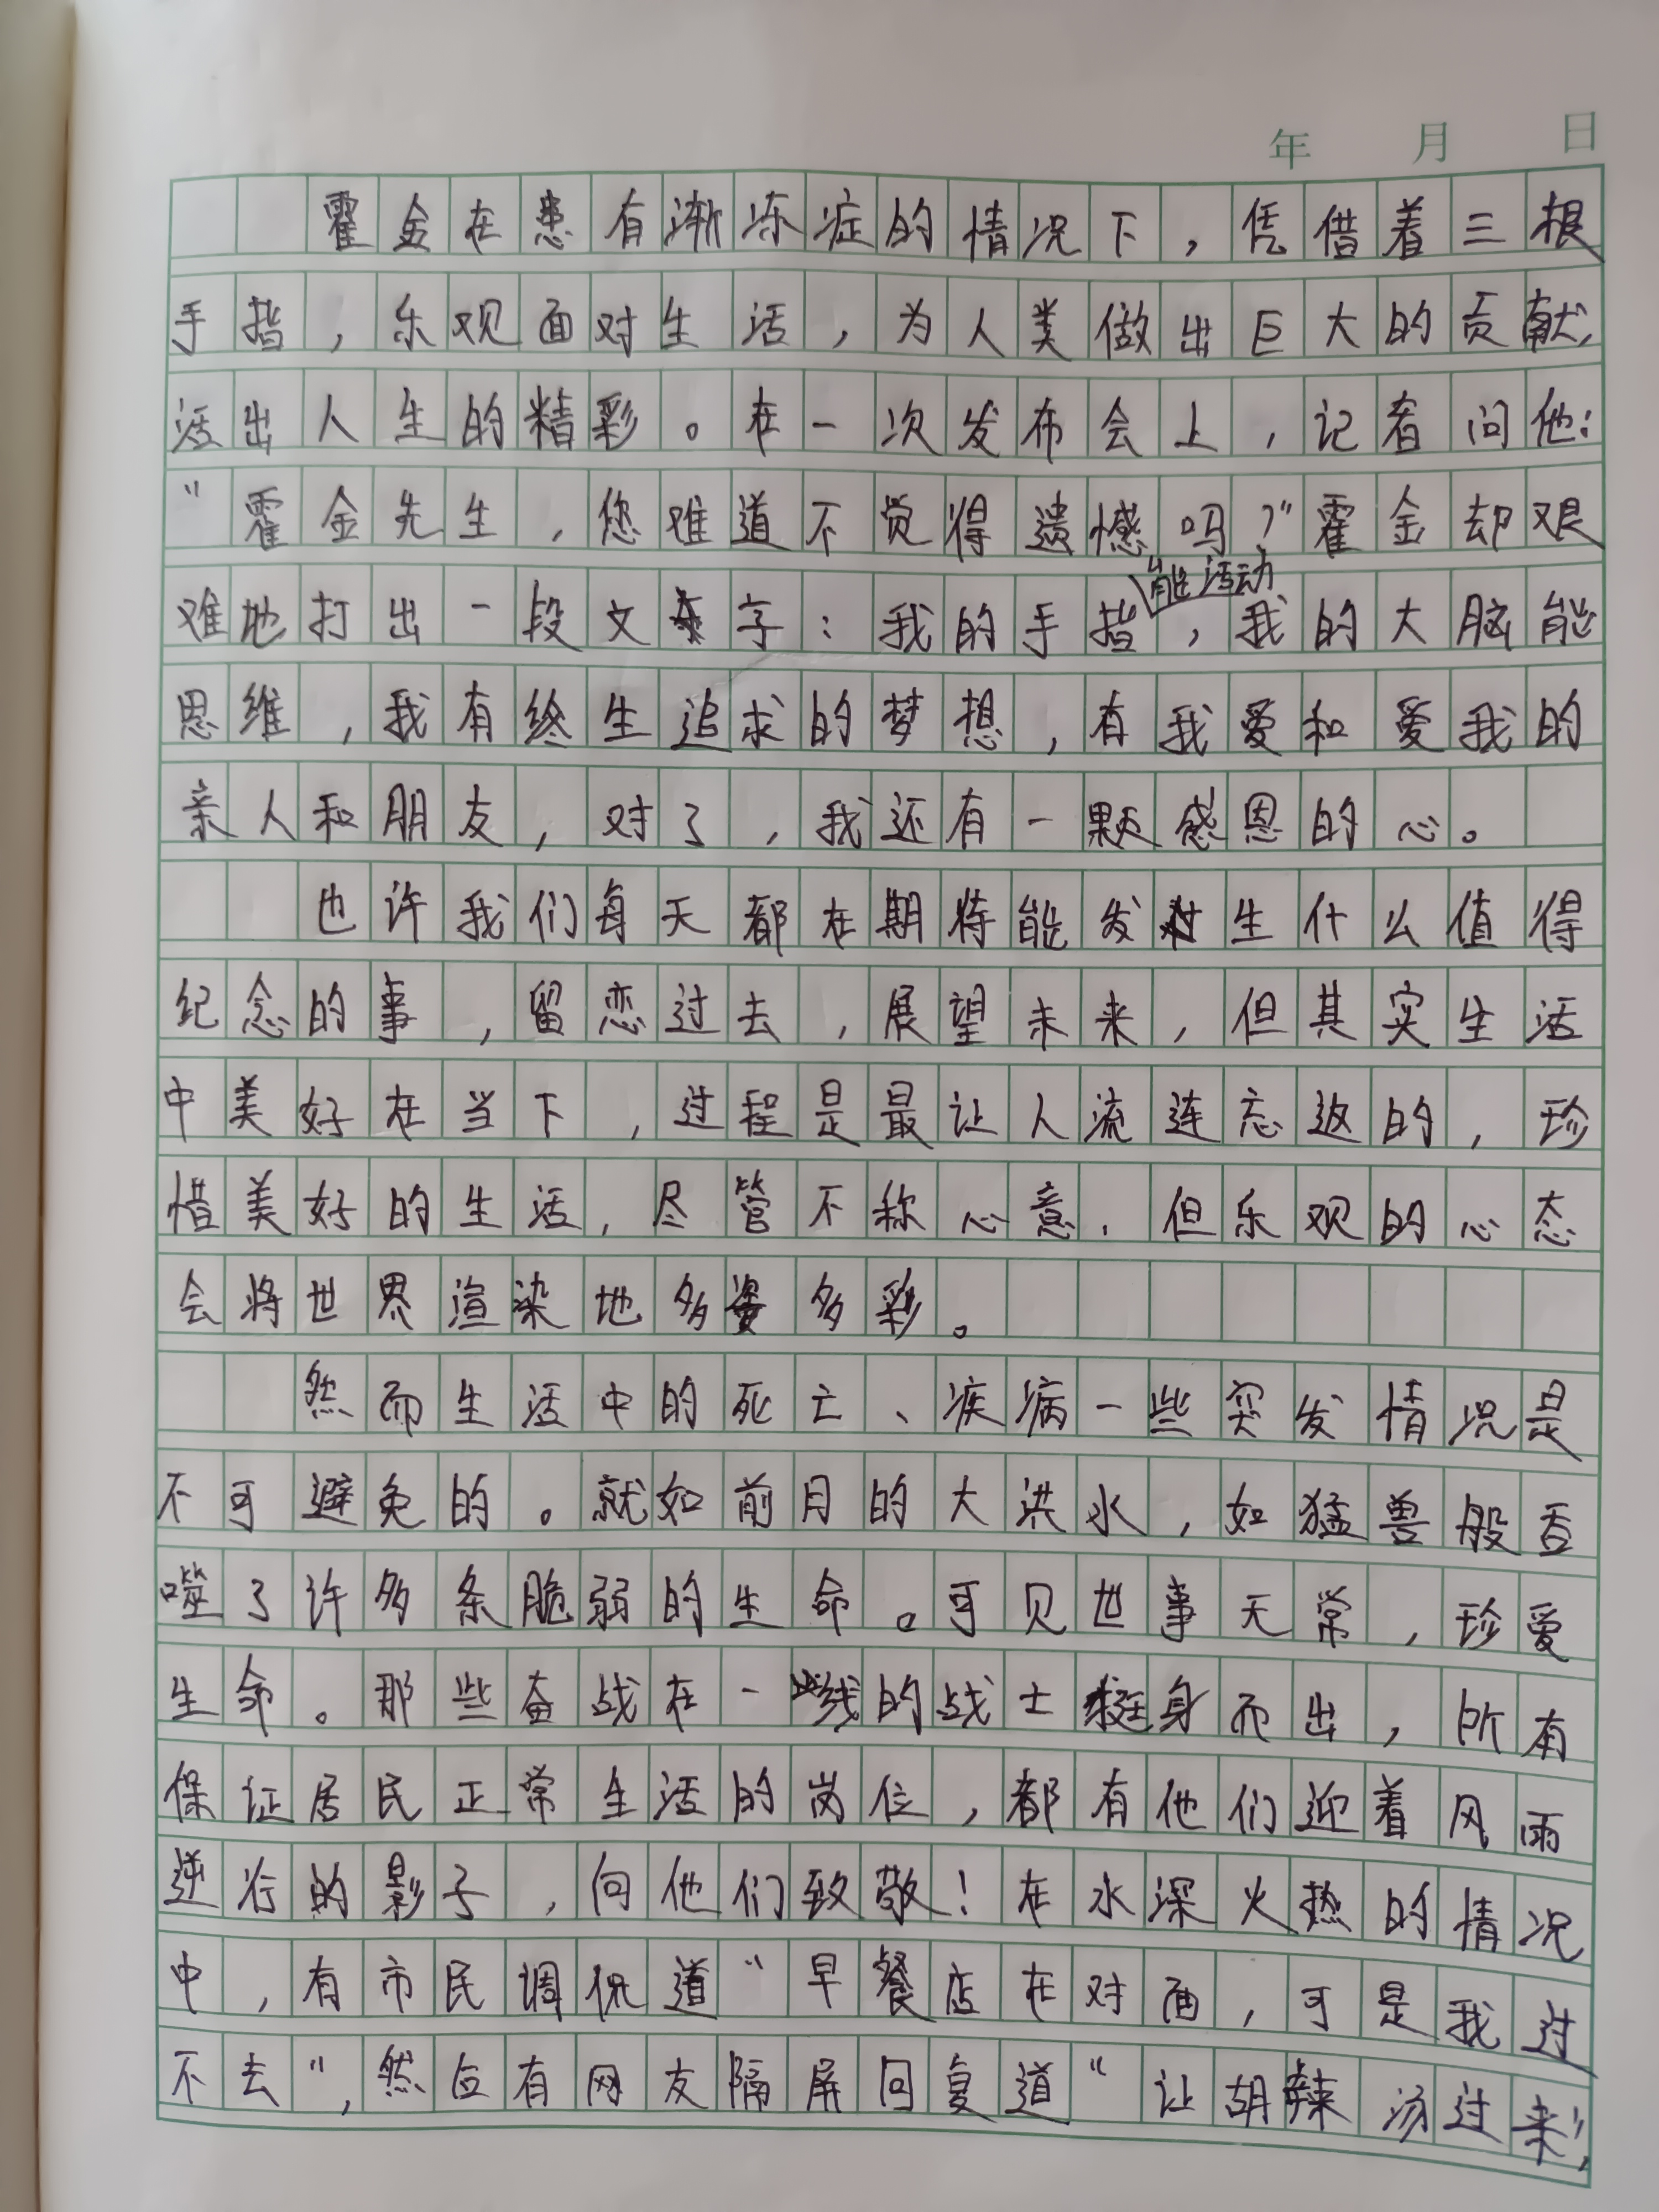 年 月 日
霍金在患有渐冻症的情况下，凭借着三根
手指，乐观面对生活，为人类做出巨大的贡献，
活出人生的精彩。在一次发布会上，记者问他：
“霍金先生，您难道不觉得遗憾吗？”霍金却艰
难地打出一段文字：我的手指能活动，我的大脑能
思维，我有终生追求的梦想，有我爱和爱我的
亲人和朋友，对了，我还有一颗感恩的心。
也许我们每天都在期待能发生什么值得
纪念的事，留恋过去，展望未来，但其实生活
中美好在当下，过程是最让人流连忘返的，珍
惜美好的生活，尽管不称心意，但乐观的心态
会将世界渲染地多姿多彩。
然而生活中的死亡、疾病一些突发情况是
不可避免的。就如前月的大洪水，如猛兽般吞
噬了许多条脆弱的生命。可见世事无常，珍爱
生命。那些奋战在一线的战士挺身而出，所有
保证居民正常生活的岗位，都有他们迎着风雨
逆行的影子，向他们致敬！在水深火热的情况
中，有市民调侃道“早餐店在对面，可是我过
不去”，然有网友隔屏回复道“让胡辣汤过来”，